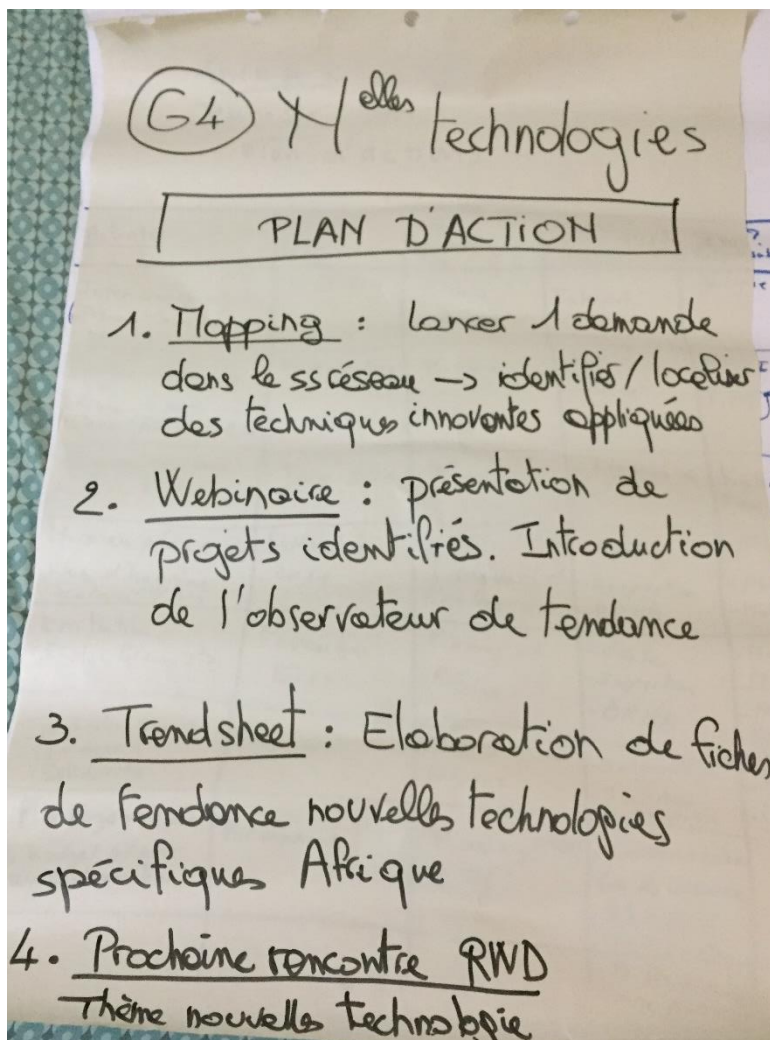 G4 Nelles technologies
PLAN D'ACTION
1. Mapping : lancer 1 demande
dans le ss réseau -> identifier/localiser
des techniques innovantes appliquées
2. Webinaire : présentation de
projets identifiés. Introduction
de l'observateur de tendance
3. Trendsheet : Elaboration de fiches
de tendance nouvelles technologies
spécifiques Afrique
4. Prochaine rencontre RWD
Thème nouvelles technologie